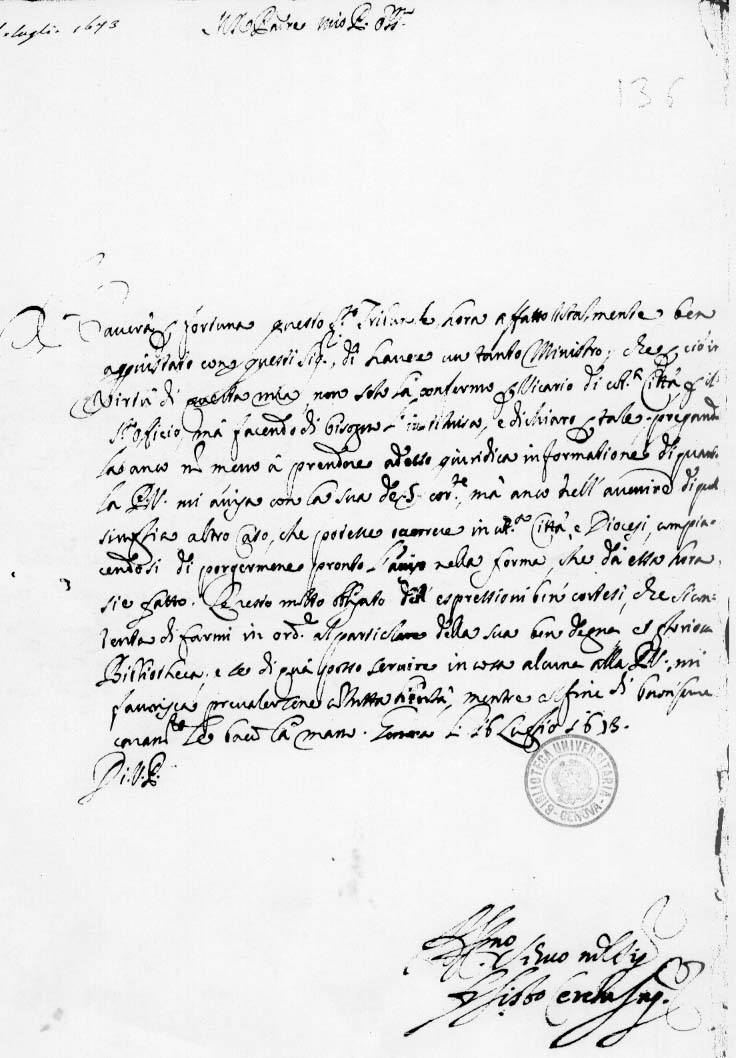 luglio 1673
M. R. Padre mio P. Oss.
136
Haverà p fortuna questo S.to Tribun.le, hora affatto totalmente ben
aggiustato con questi Sig.ri, di havere un tanto Ministro; che p ciò in
Virtù di questa mia, non solo la confermo p Vicario di cot.a Città, p il
S. Officio, mà facendo di bisogno l'instituisco, e dichiaro p tale. pregando
la anco n. meno à prendere adesso giuridica informatione di quanto
la P. V. mi avisa con la sua de 5. cor.te, mà anco nell'avenire di qual
sivoglia altro caso, che potesse occorrere in cot.a Città, e Diocesi, compia
cendosi di porgermene pronto l'aviso nella forma, che da essa hora
sie fatto. Le resto molto obligato dell' espressioni ben cortesi, che si con
tenta di farmi in ord.e al particolare della sua ben degna, et gloriosa
Bibliotheca; e se di quà posso servire in cosa alcuna alla P. V., mi
favorisca prevalersene c tutta libertà, mentre al fine di
le bacio la mano. Genova li 16 Luglio 1673.
Di V. P.
BIBLIOTECA UNIVERSITARIA
GENOVA
Aff.mo Servo nel Sig.
Cerela Inq.